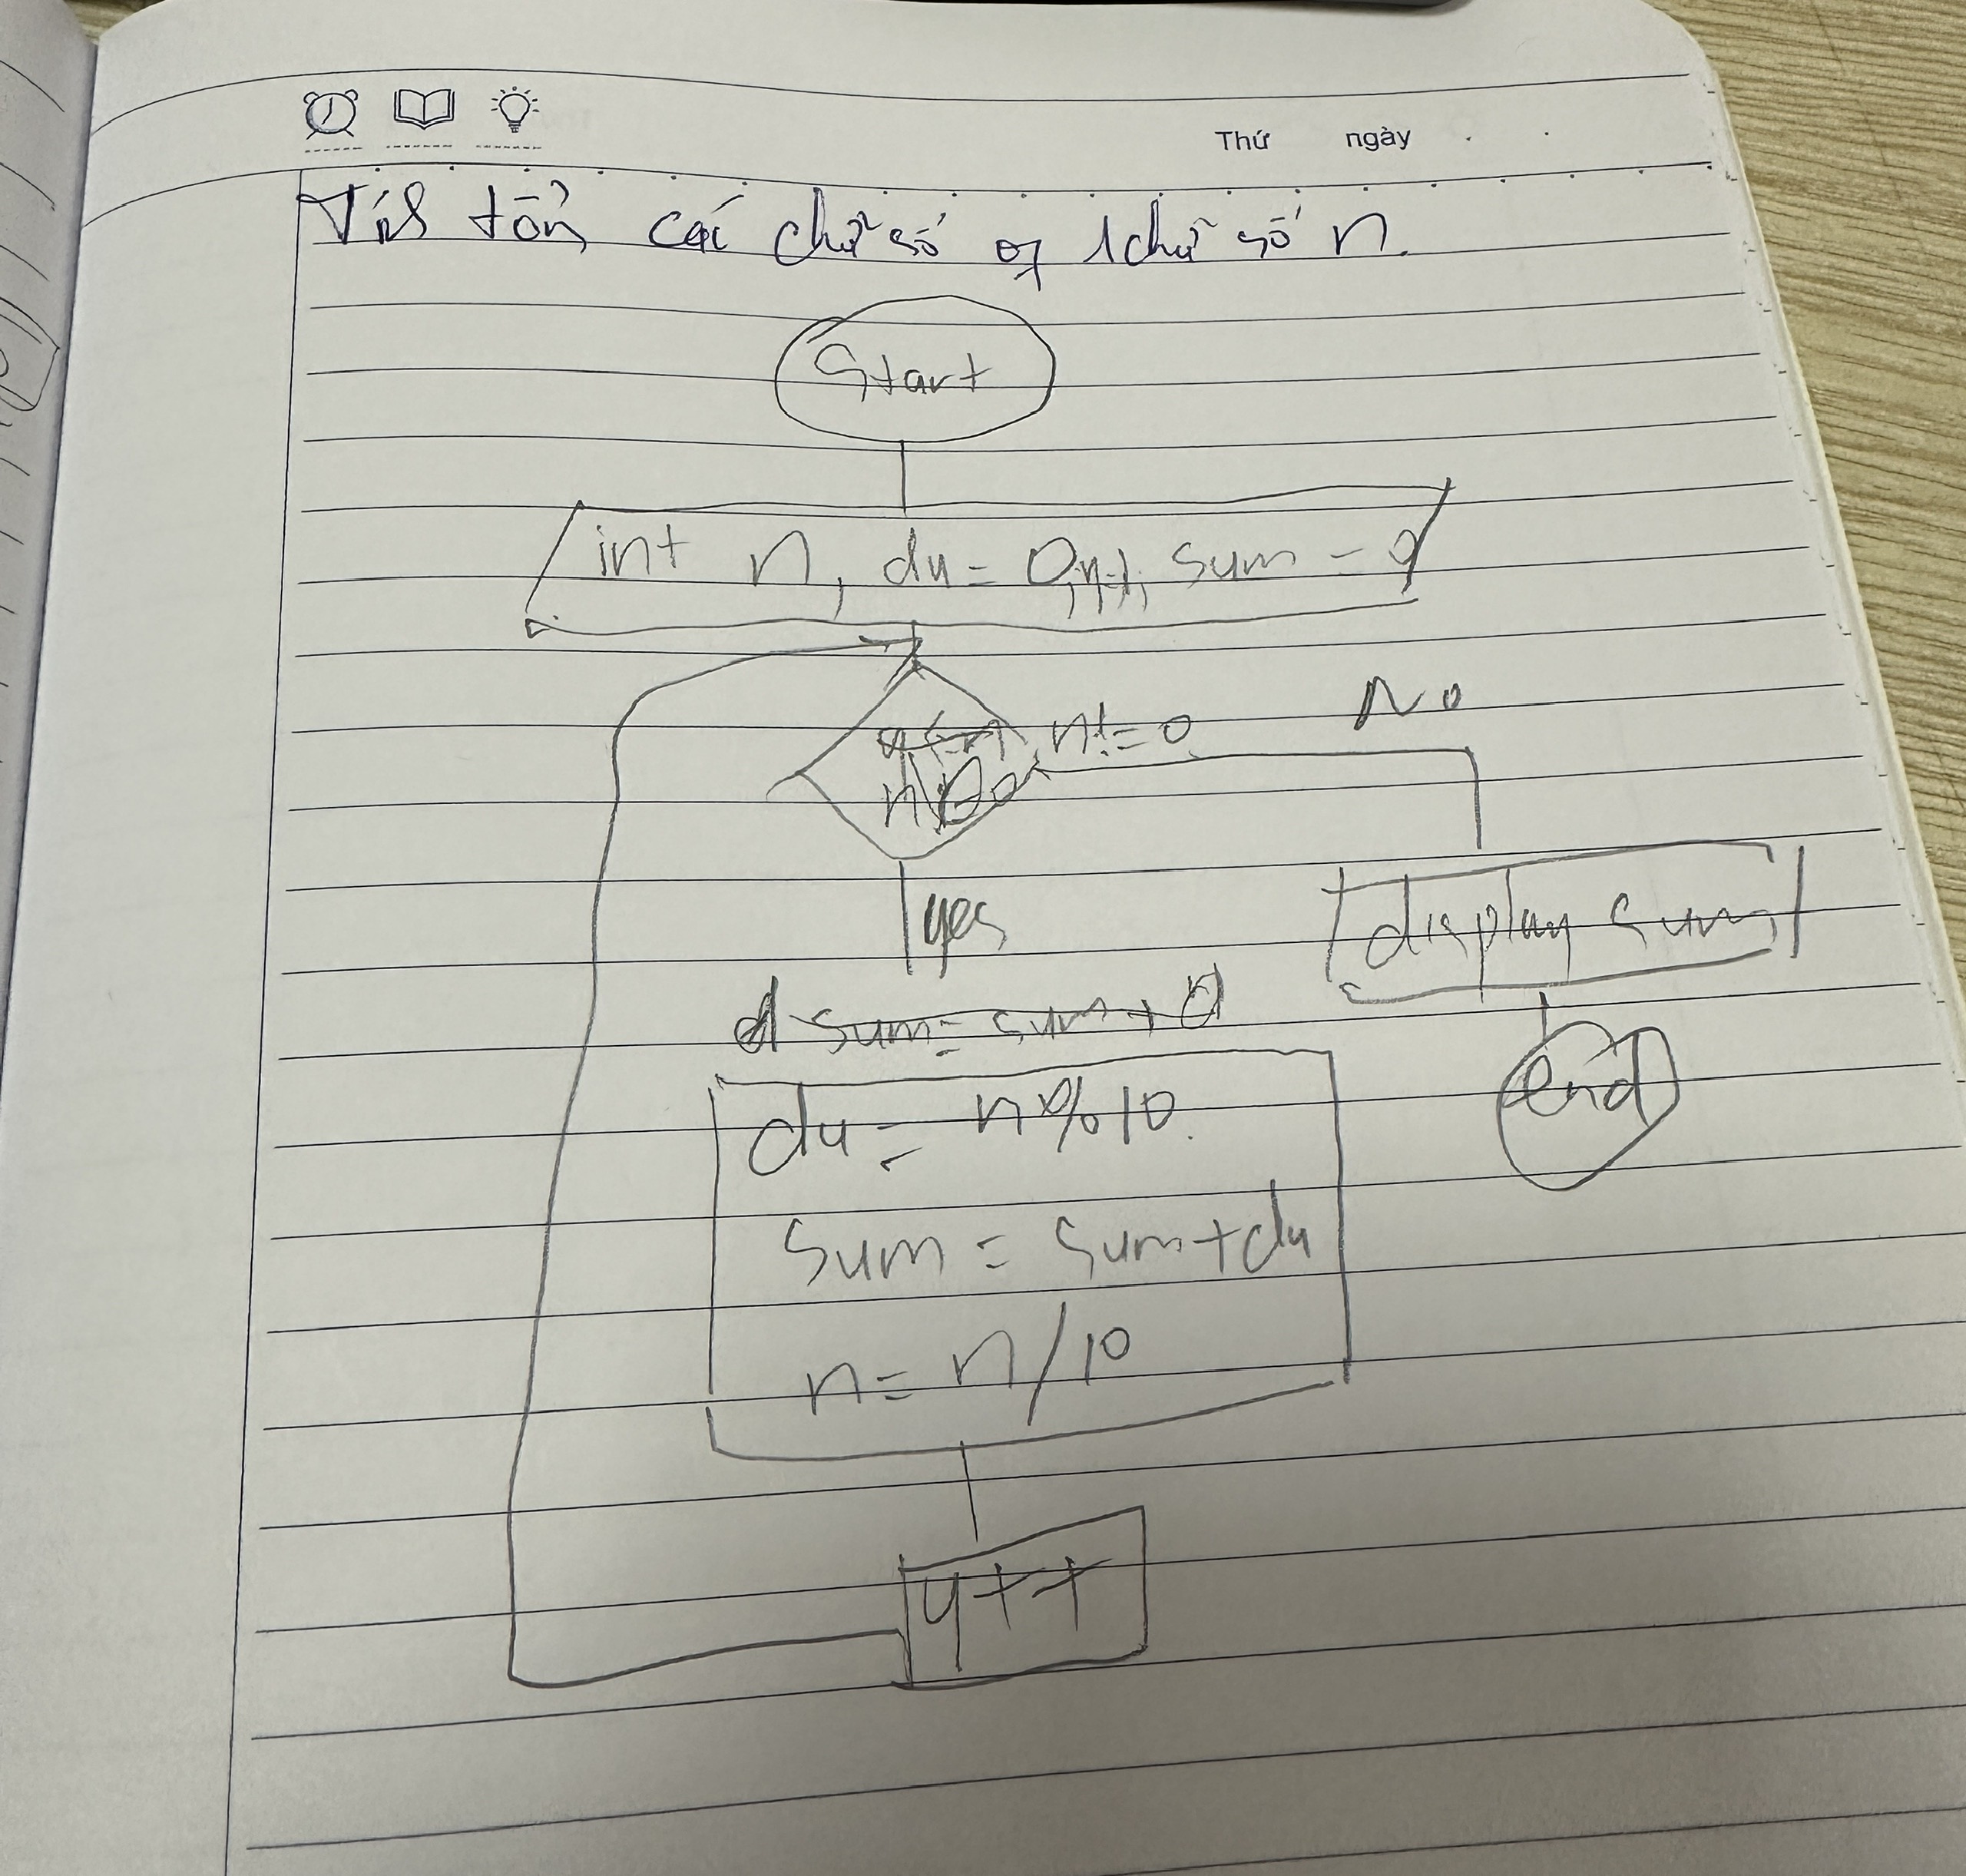 Thứ ngày
Tính tổng các chữ số of 1 chữ số n.
Start
int n, du = 0, sum = 0
n != 0
No
yes
display sum
d sum = sum + d
end
du = n % 10
sum = sum + du
n = n / 10
y++